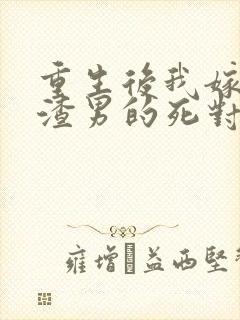 重生後我嫁
渣男的死對
雍增·益西堅